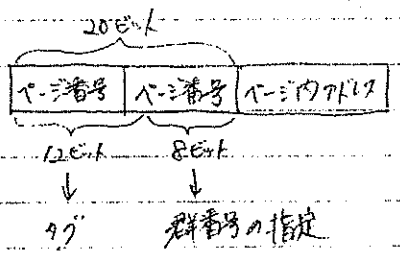 20ビット
ページ番号 ページ番号 ページ内アドレス
12ビット 8ビット
↓ ↓
タグ 群番号の指定